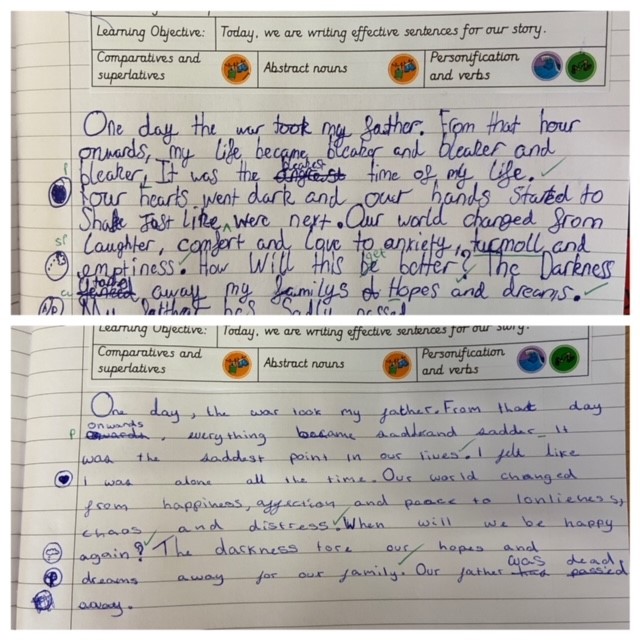 Learning Objective: Today, we are writing effective sentences for our story.
Comparatives and superlatives Abstract nouns Personification and verbs
One day the war took my father. From that hour
onwards, my life became bleaker and bleaker and
bleakest
bleaker, It was the time of my life.
Four hearts went dark and our hands started to
Shake Just like were next. Our world changed from
sp
Laughter, comfort and Love to anxiety, turmoll and
get
emptiness. How Will this be better? The Darkness
away my familys Hopes and dreams.
My father has Sadly passed
Learning Objective: Today, we are writing effective sentences for our story.
Comparatives and superlatives Abstract nouns Personification and verbs
One day, the war took my father. From that day
onwards
P onwards, everything became sadder and sadder. It
was the saddest point in our lives. I felt like
I was alone all the time. Our world changed
from happiness, affection and peace to lonlieness,
chaos and distress. When will we be happy
again? The darkness tore our hopes and
dreams away for our family. Our father was dead
had passed
away.